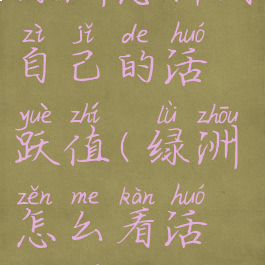 zì jǐ de huó
自己的活
yuè zhí lǜ zhōu
跃值(绿洲
zěn me kàn huó
怎么看活